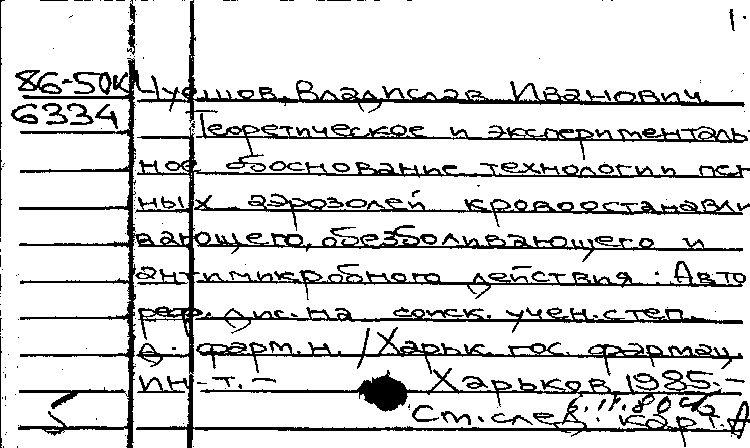 1.
86-50К Чуешов, Владислав Иванович.
6334 Теоретическое и эксперименталь
ное обоснование технологии пен
ных аэрозолей кровоостанавли
вающего, обезболивающего и
антимикробного действия: Авто
реф. дис. на соиск. учен. степ.
д. фарм. н. / Харьк. гос. фармац.
ин-т. –
Харьков, 1985. –
5 См. след. карт. А